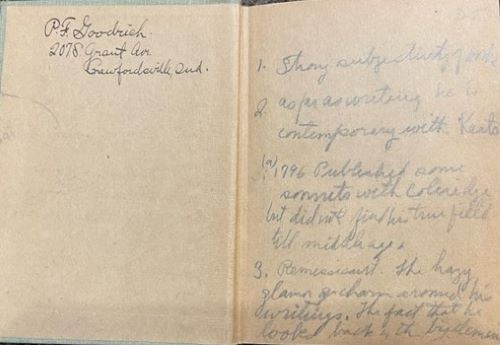 P.F. Goodrich
207 S. Grant Av.
Crawfordsville, Ind.
1. Strong subjectivity
2 as far as writing he is
contemporary with Keats
(a)
1796 Published some
sonnets with Coleridge
but did not find his true field
till middle age.
3. The hazy
glamor & charm around his
writings. The fact that he
looks back with